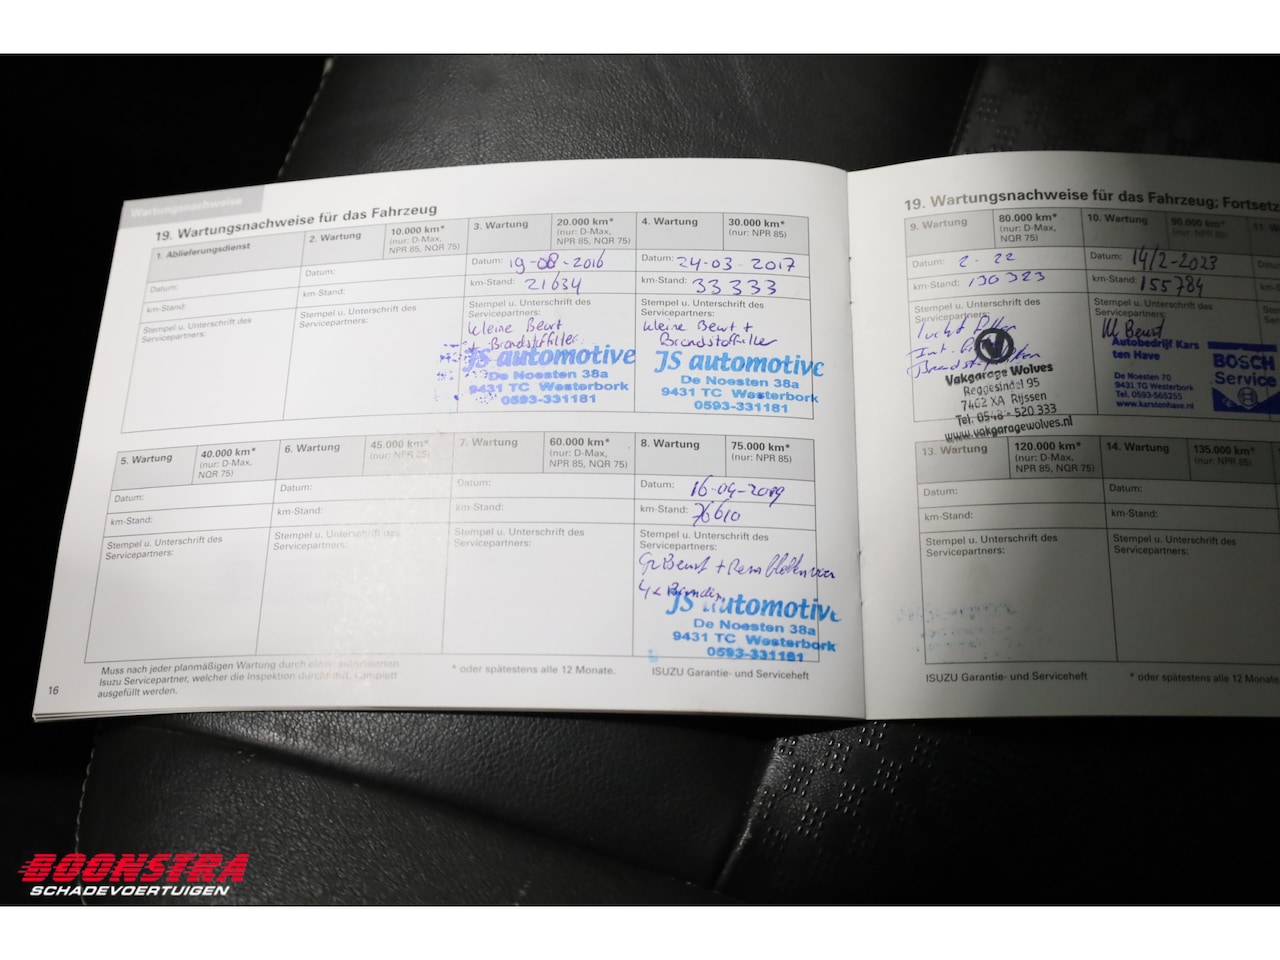 Wartungsnachweise
19. Wartungsnachweise für das Fahrzeug
1. Ablieferungsdienst
Datum:
km-Stand:
Stempel u. Unterschrift des
Servicepartners:
2. Wartung
10.000 km*
(nur: D-Max,
NPR 85, NQR 75)
Datum:
km-Stand:
Stempel u. Unterschrift des
Servicepartners:
3. Wartung
20.000 km*
(nur: D-Max,
NPR 85, NQR 75)
Datum: 19-08-2016
km-Stand: 21634
Stempel u. Unterschrift des
Servicepartners:
kleine Beurt
+ Brandstoffilter
JS automotive
De Noesten 38a
9431 TC Westerbork
0593-331181
4. Wartung
30.000 km*
(nur: NPR 85)
Datum: 24-03-2017
km-Stand: 33333
Stempel u. Unterschrift des
Servicepartners:
kleine Beurt +
Brandstoffilter
JS automotive
De Noesten 38a
9431 TC Westerbork
0593-331181
5. Wartung
40.000 km*
(nur: D-Max,
NQR 75)
Datum:
km-Stand:
Stempel u. Unterschrift des
Servicepartners:
6. Wartung
45.000 km*
(nur: NPR 85)
Datum:
km-Stand:
Stempel u. Unterschrift des
Servicepartners:
7. Wartung
60.000 km*
(nur: D-Max,
NPR 85, NQR 75)
Datum:
km-Stand:
Stempel u. Unterschrift des
Servicepartners:
8. Wartung
75.000 km*
(nur: NPR 85)
Datum: 16-04-2019
km-Stand: 76610
Stempel u. Unterschrift des
Servicepartners:
Gr Beurt + Remblokken voor
4x
JS automotive
De Noesten 38a
9431 TC Westerbork
0593-331181
Muss nach jeder planmäßigen Wartung durch einen autorisierten
Isuzu Servicepartner, welcher die Inspektion durchführt, komplett
ausgefüllt werden.
* oder spätestens alle 12 Monate.
ISUZU Garantie- und Serviceheft
16
19. Wartungsnachweise für das Fahrzeug; Fortsetz
9. Wartung
80.000 km*
(nur: D-Max,
NQR 75)
Datum: 2-22
km-Stand: 130323
Stempel u. Unterschrift des
Servicepartners:
lucht filter
Int. filter
Brandstof filter
Vakgarage Wolves
Reggesingel 95
7462 XA Rijssen
Tel. 0548 - 520 333
www.vakgaragewolves.nl
10. Wartung
90.000 km*
(nur: NPR 85)
Datum: 14/2-2023
km-Stand: 155784
Stempel u. Unterschrift des
Servicepartners:
Beurt
Autobedrijf Kars
ten Have
De Noesten 70
9431 TG Westerbork
Tel. 0593-565255
www.karstenhave.nl
BOSCH
Service
11. W
13. Wartung
120.000 km*
(nur: D-Max,
NPR 85, NQR 75)
Datum:
km-Stand:
Stempel u. Unterschrift des
Servicepartners:
14. Wartung
135.000 km*
(nur: NPR 85)
Datum:
km-Stand:
Stempel u. Unterschrift des
Servicepartners:
ISUZU Garantie- und Serviceheft
* oder spätestens alle 12 Monate
BOONSTRA
SCHADEVOERTUIGEN